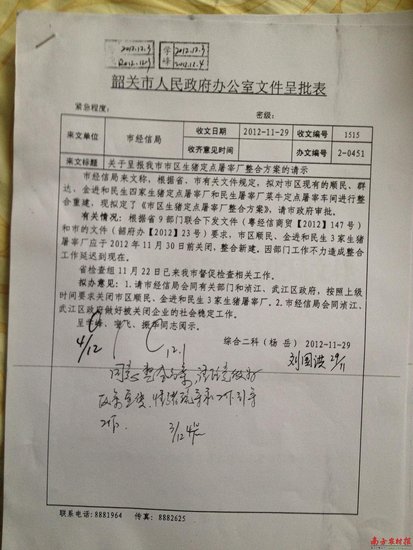 2012.12.3
学
2012.12.3
峰
2012.12.4
韶关市人民政府办公室文件呈批表
紧急程度: 密级:
来文单位 市经信局 收文日期 2012-11-29 收文编号 1515
收齐意见时间 办文编号 2-0451
来文标题 关于呈报我市市区生猪定点屠宰厂整合方案的请示
市经信局来文称，根据省、市有关文件规定，拟对市区现有的顺民、群
达、金进和民生四家生猪定点屠宰厂和民生菜牛定点屠宰车间进行整
合重建，现拟定了《市区生猪定点屠宰厂整合方案》，请市政府审批。
有关情况：根据省9部门联合下发文件（粤经信商贸【2012】147号）
和市的文件（韶府办【2012】23号）要求，市区顺民、金进和民生3家生猪
屠宰厂应于2012年11月30日前关闭，整合新建。因部门工作不力造成整合
工作延迟到现在。
省检查组11月22日已来我市督促检查相关工作。
拟办意见：1.请市经信局会同有关部门和浈江、武江区政府，按照上级
时间要求关闭市区顺民、金进和民生3家生猪屠宰厂。2.市经信局会同浈江、
武江区政府做好被关闭企业的社会稳定工作。
呈学峰、
飞、振华同志阅示。
综合二科（杨 岳） 2012-11-29
4/12
12.1
刘国洪 29/11
同意
工作.
3/12
联系电话:8881964 传真: 8882625
南方农村报